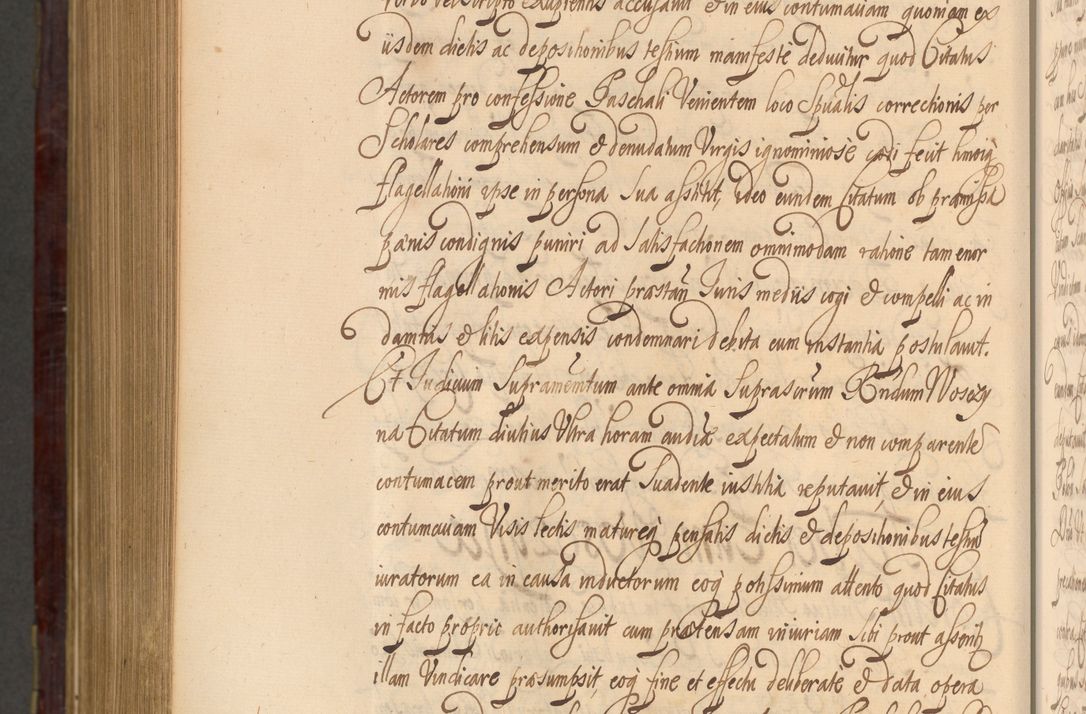 iisdem dictis ac depositionibus testium manifestè deducitur quod Citatus
Actorem pro confessione Paschali Venientem loco Spũalis correctionis per
Scholares comprehensum & denudatum Virgis ignominiose cædi fecit hmõiq
flagellationi ipse in persona sua astitit, ideo eundem Citatum ob præmissa
pænis condignis puniri ad Satisfactionem omnimodam ratione tam enor
mis flagellationis Actori præstan Iuris medijs cogi & compelli ac in
damnis & litis expensis condemnari debita cum instantia postulavit.
Et Iudicium Supramentum ante omnia Suprascrum Rndum Woszy
na Citatum diutius Ultra horam audiæ expectatum & non comparente
contumacem prout merito erat Suadente iustitia reputavit, & in eius
contumaciam Visis lectis matureq pensatis dictis & depositionibus testiu
iuratorum ea in causa inductorum eoq potissimum attento quod Citatus
in facto proprio authorisavit cum prætensam iniuriam sibi prout asserit
illam Vindicare præsumpsit, eoq fine et effectu deliberate & data opera